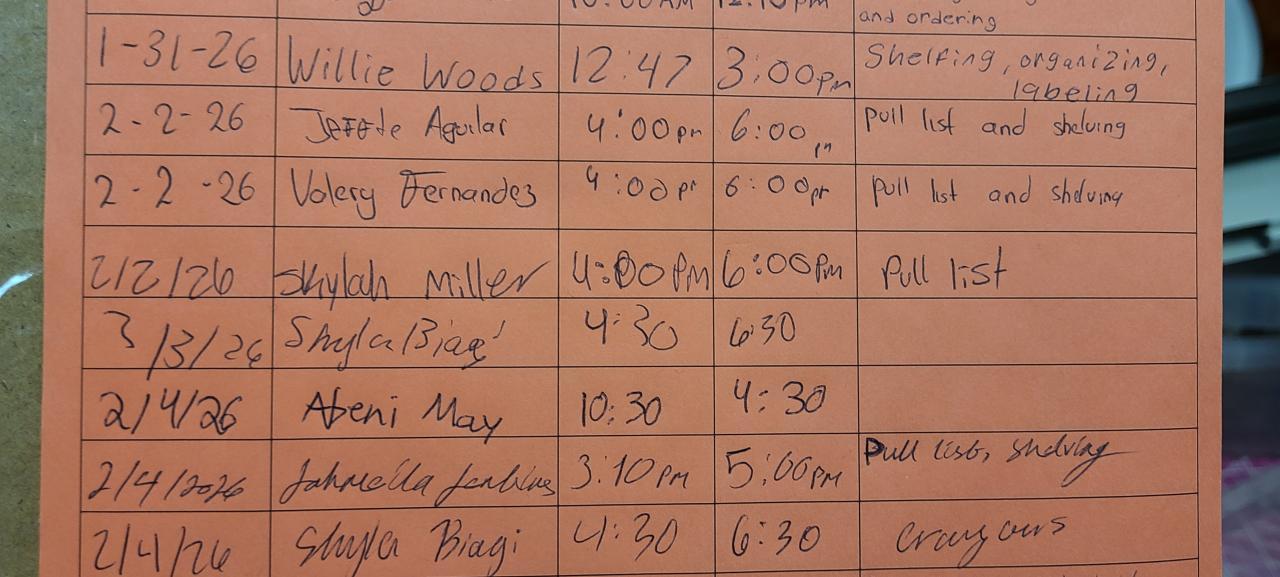 10:00AM 12:10pm
and ordering
1-31-26 Willie Woods 12:47 3:00pm Shelfing, organizing,
labeling
2-2-26 Aguilar 4:00pm 6:00pm pull list and shelving
2-2-26 Valery Fernandez 4:00pm 6:00pm pull list and shelving
2/2/26 Skylah Miller 4:00PM 6:00PM Pull list
3/3/26 Shyla Biagi 4:30 6:30
2/4/26 Abeni May 10:30 4:30
2/4/2026 Jenkins 3:10PM 5:00PM Pull list, shelving
2/4/26 Shyla Biagi 4:30 6:30